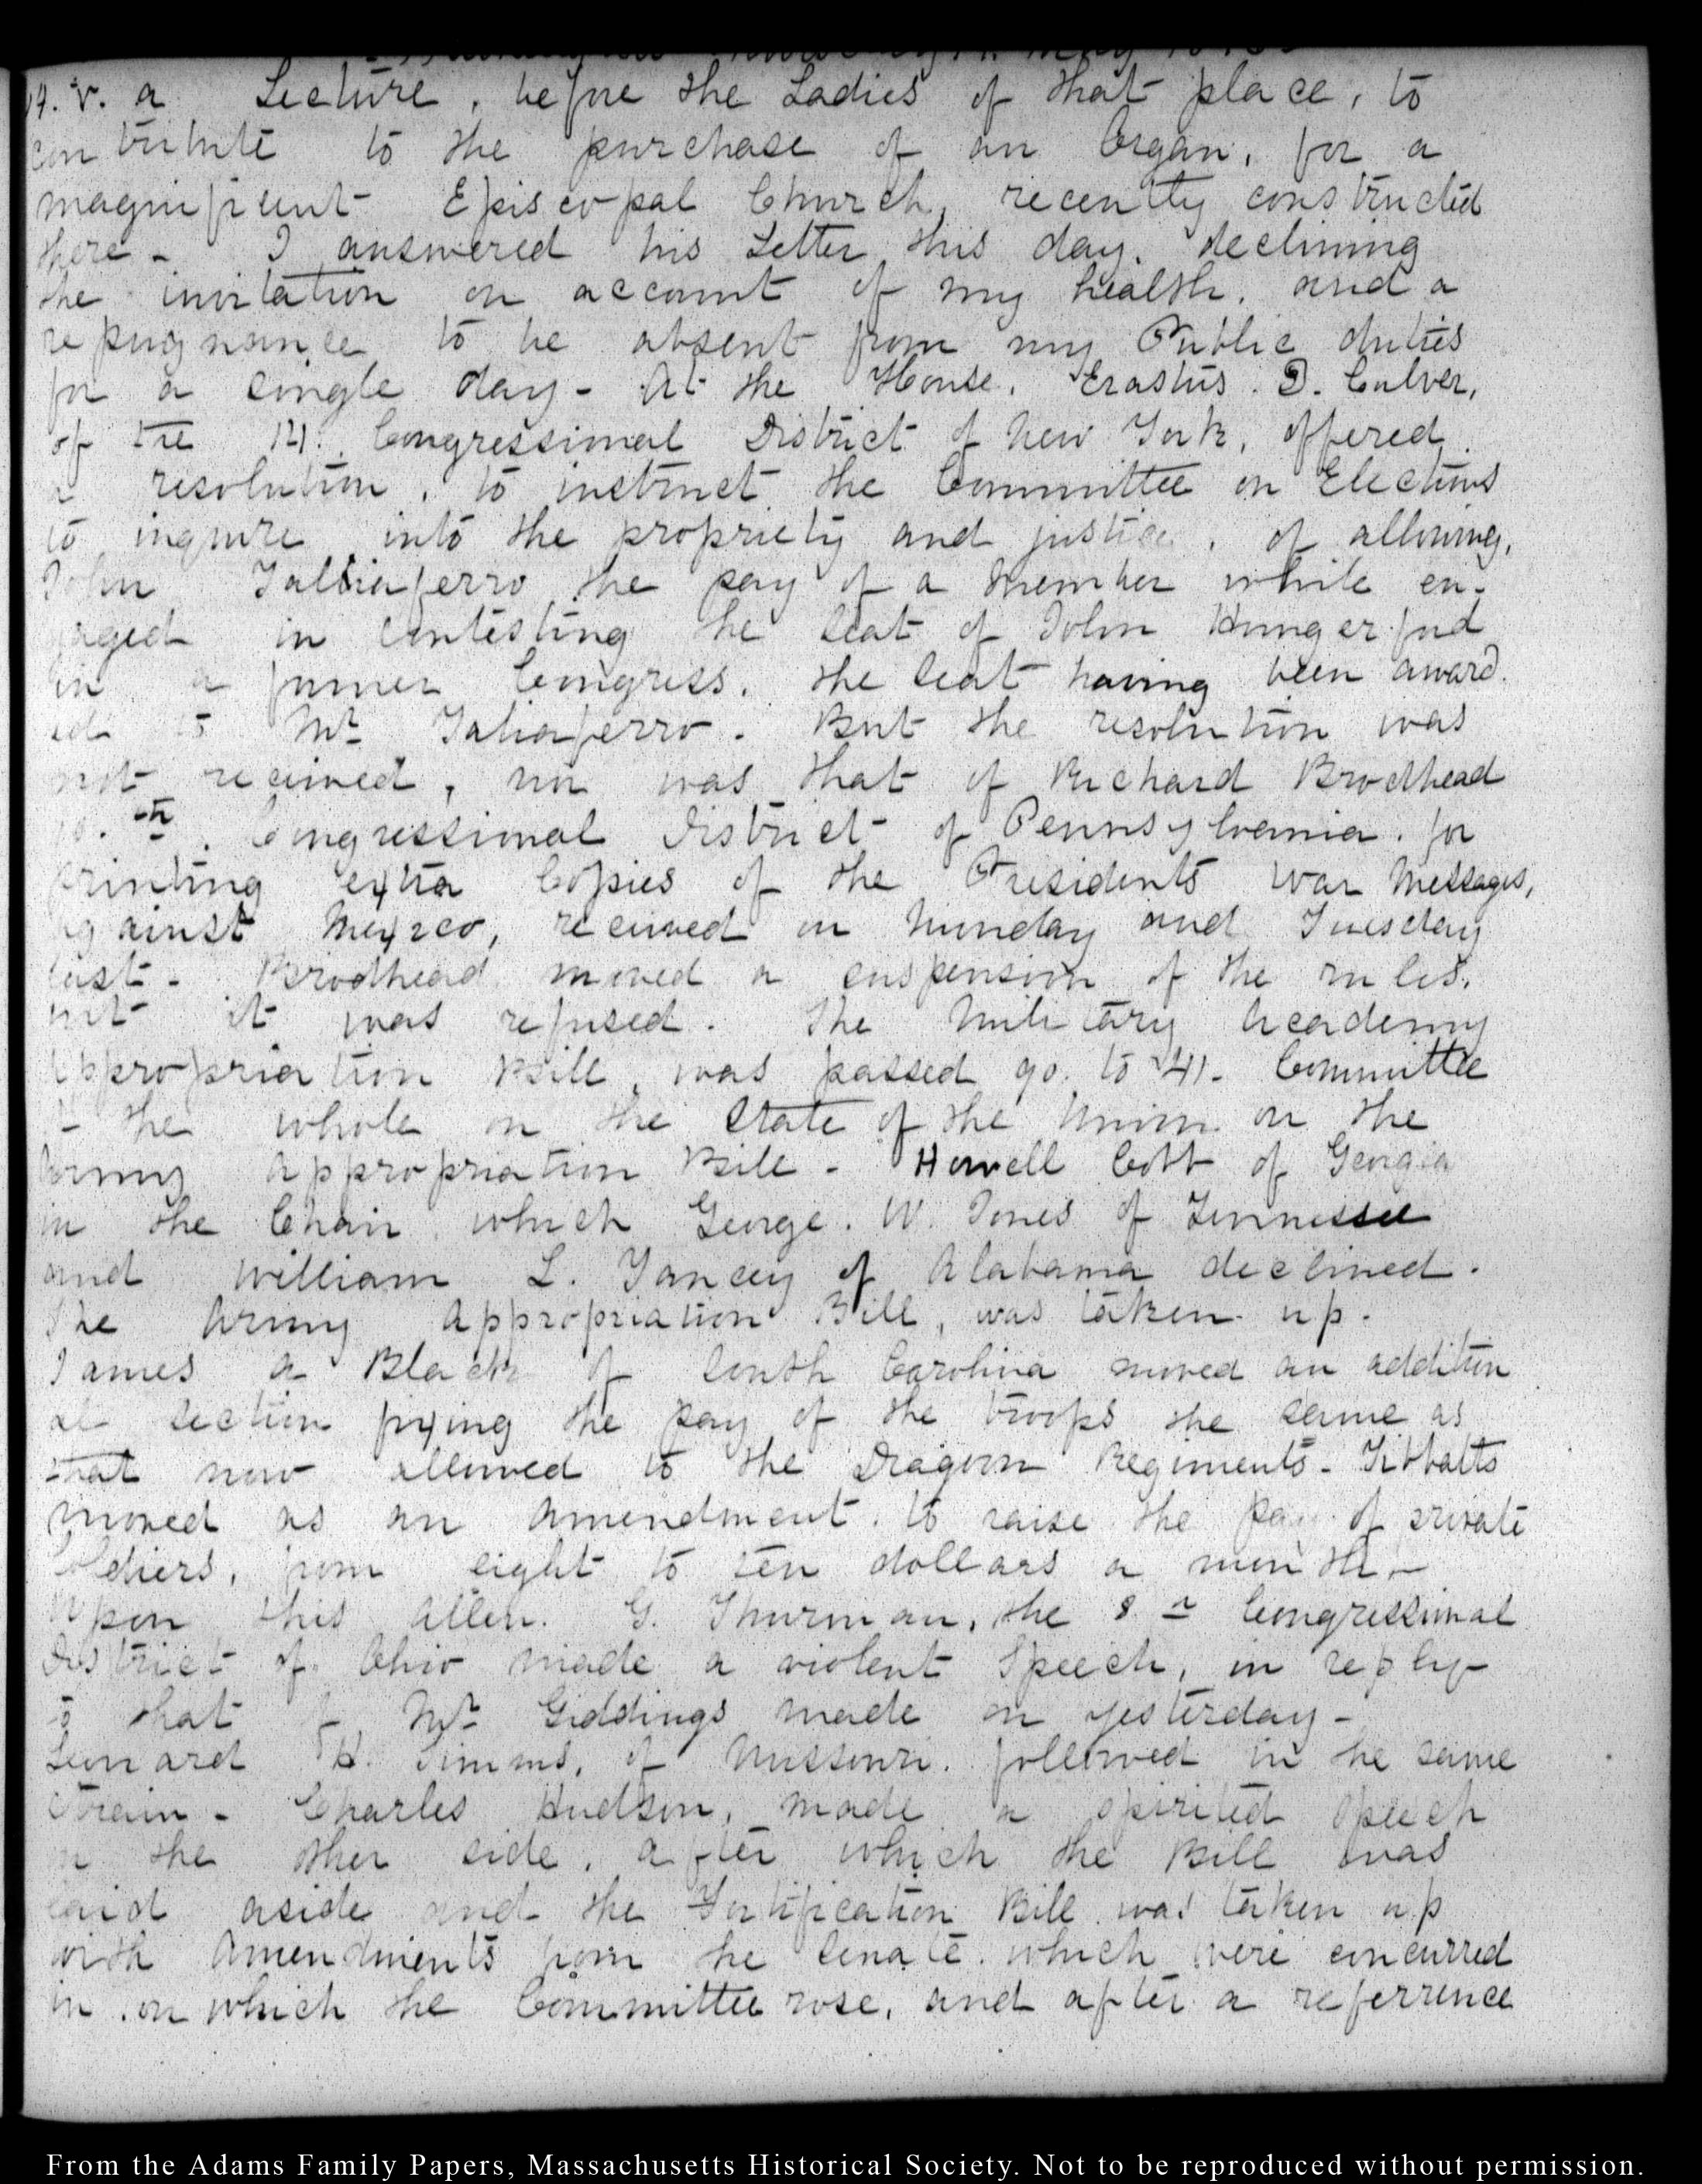 Washington Thursday 14. May 1846
14. V. a Lecture, before the Ladies of that place, to
contribute to the purchase of an Organ, for a
magnificent Episcopal Church, recently constructed
there - I answered his Letter this day, declining
the invitation on account of my health, and a
repugnance to be absent from my Public duties
for a single day - At the House, Erastus. D. Culver,
of the 14. Congressional District of New York, offered
a resolution, to instruct the Committee on Elections
to inquire into the propriety and justice, of allowing,
John Talliaferro the pay of a Member while en-
gaged in contesting the Seat of John Hungerford
in a former Congress, the Seat having been award.
ed to Mr Taliaferro. But the resolution was
not received, nor was that of Richard Brodhead
10.th Congressional District of Pennsylvania, for
printing extra Copies of the Presidents War Messages,
against Mexico, received on Monday and Tuesday
last - Brodhead moved a suspension of the rules,
but it was refused. The Military Academy
Appropriation Bill, was passed 90. to 41. Committee
of the whole on the State of the Union on the
Army Appropriation Bill - Howell Cobb of Georgia
in the Chair, which George. W. Jones of Tennessee
and William L. Yancey of Alabama declined.
The Army Appropriation Bill, was taken up.
James A Black of South Carolina moved an addition
al section fixing the pay of the troops the same as
that now allowed to the Dragoon Regiments - Tibbatts
moved as an Amendment, to raise the pay of private
Soldiers, from eight to ten dollars a month. -
Upon this Allen. G. Thurman, the 8.th Congressional
District of Ohio made a violent Speech, in reply
to that of Mr Giddings made on yesterday -
Leonard H. Simms, of Missouri, followed in the same
Strain - Charles Hudson, made a spirited Speech
on the other side, after which the Bill was
laid aside and the Fortification Bill was taken up
with Amendments from the Senate, which were concurred
in, on which the Committee rose, and after a referrence
From the Adams Family Papers, Massachusetts Historical Society. Not to be reproduced without permission.